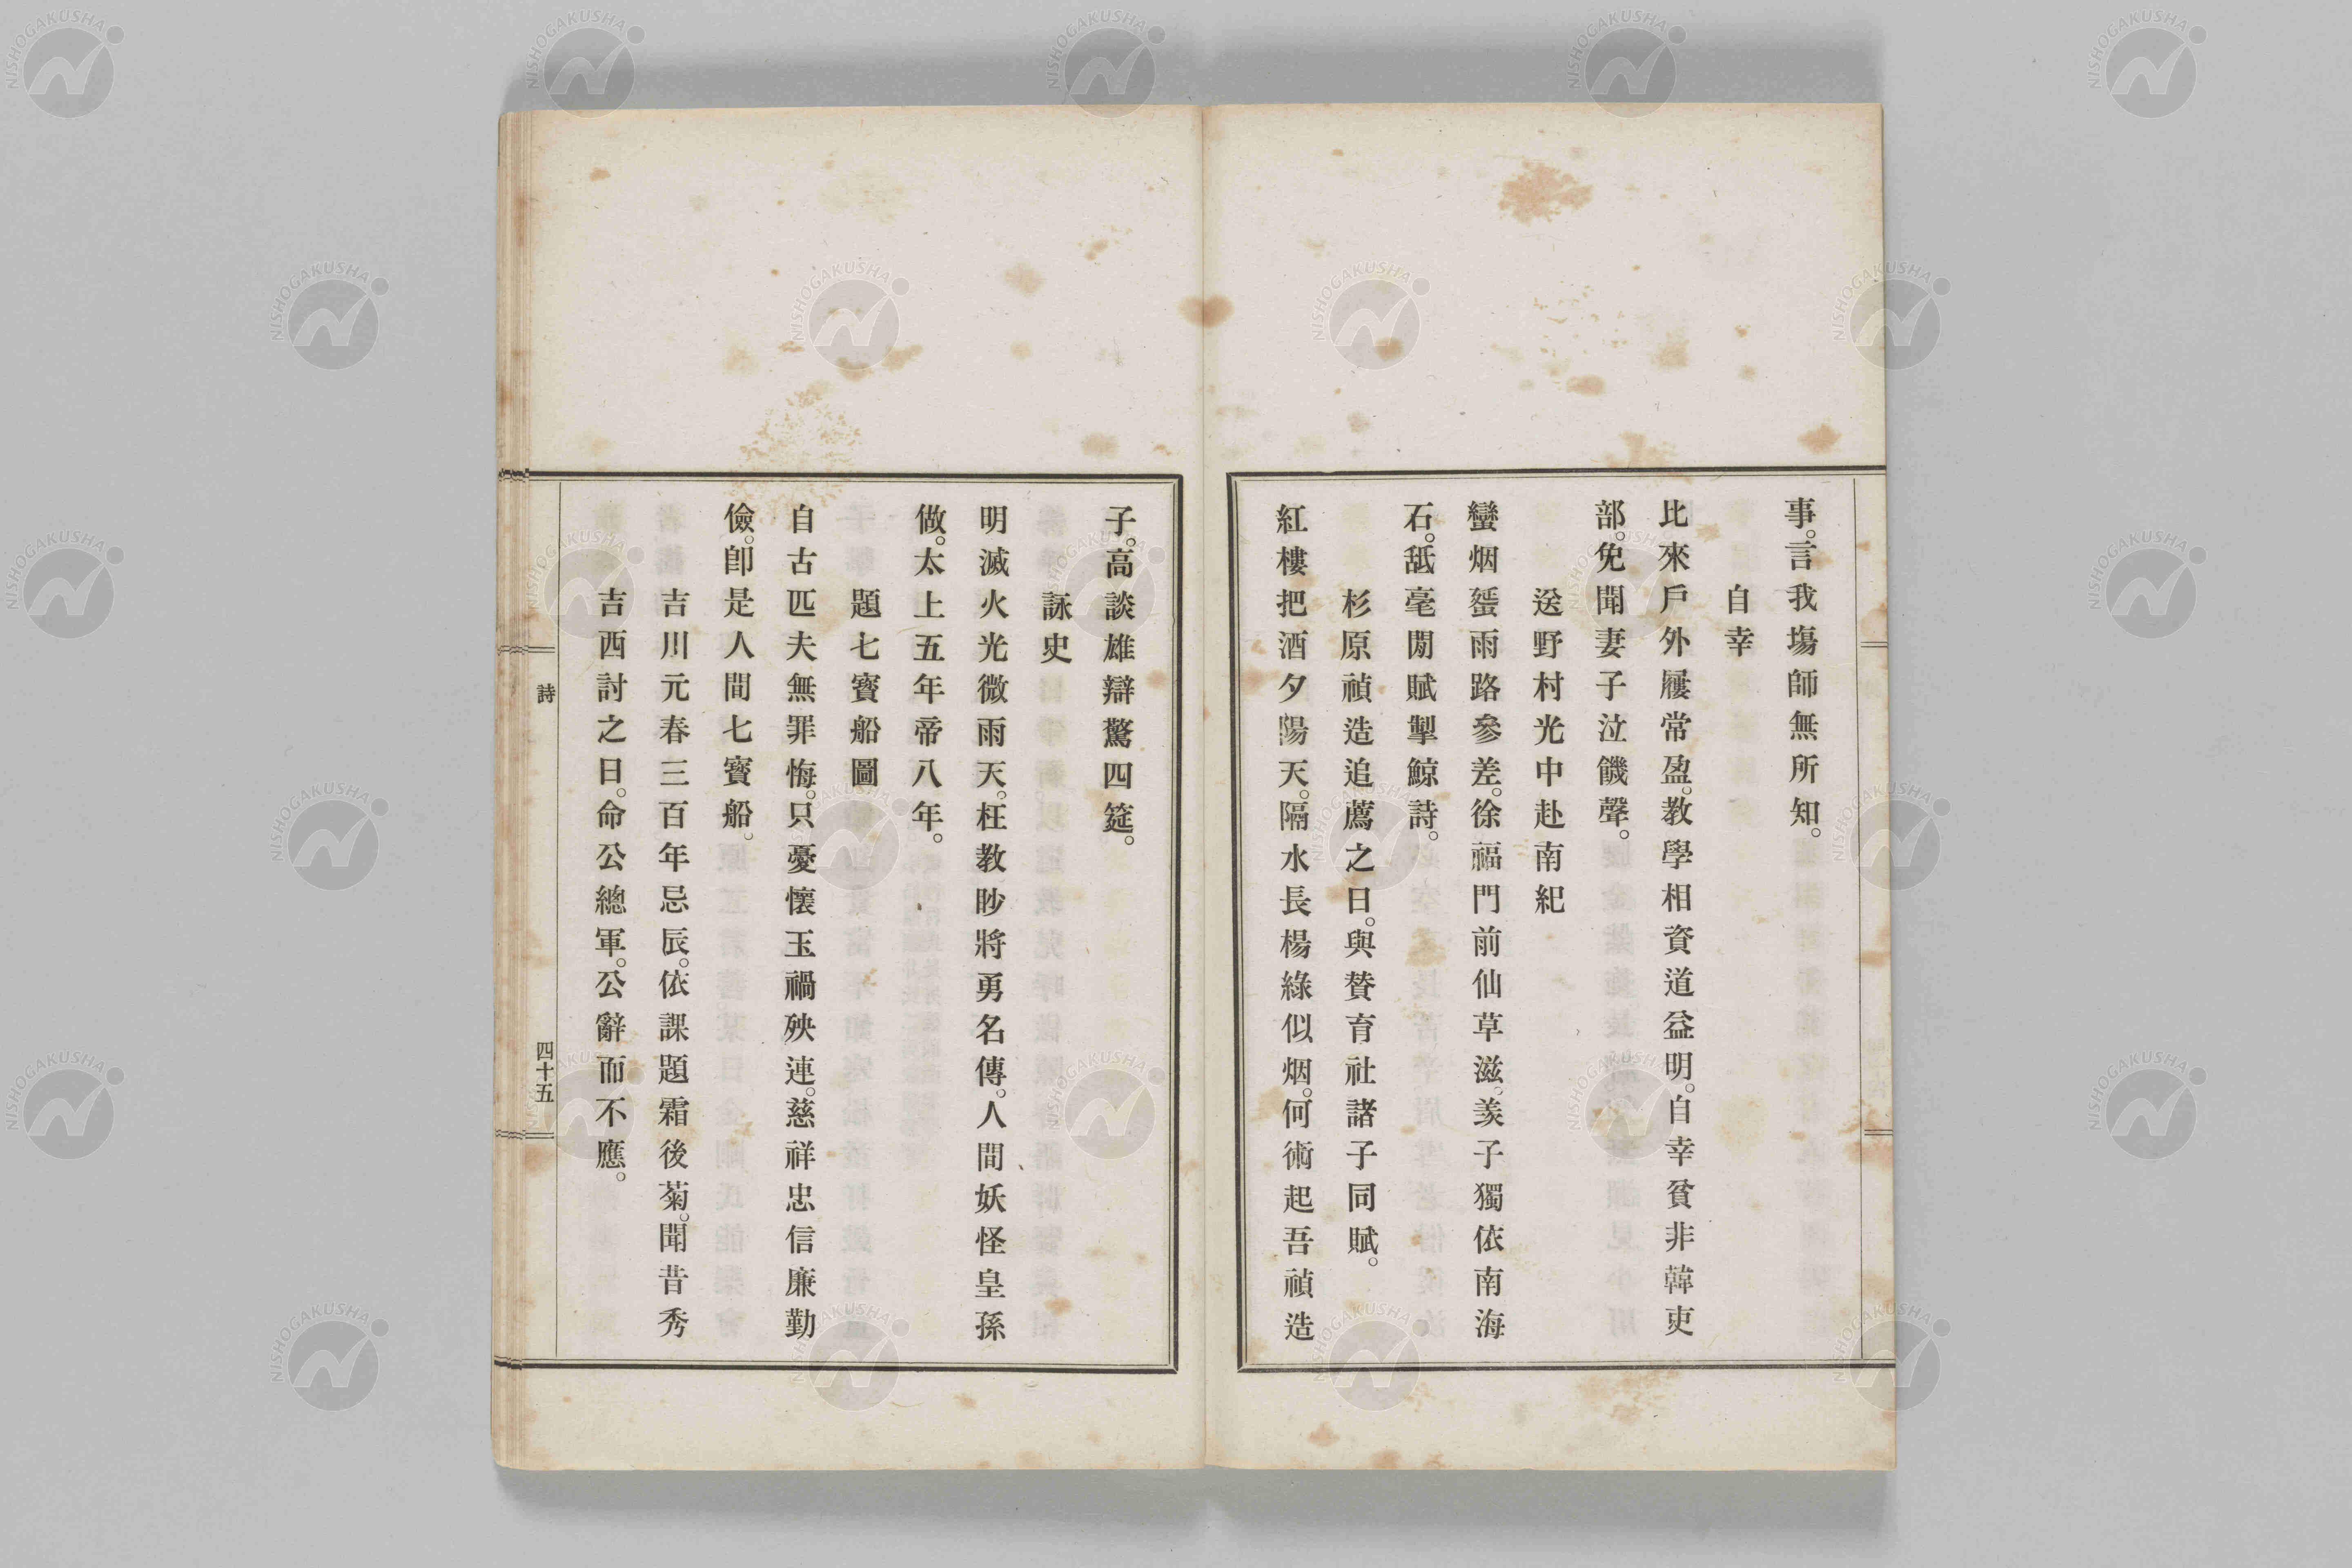 事。言我塲師無所知。
自幸
比來戶外屨常盈。教學相資道益明。自幸貧非韓吏
部。免聞妻子泣饑聲。
送野村光中赴南紀
蠻烟蜑雨路參差。徐福門前仙草滋。羨子獨依南海
石。舐毫閒賦掣鯨詩。
杉原禎造追薦之日。與贊育社諸子同賦。
紅樓把酒夕陽天。隔水長楊綠似烟。何術起吾禎造
子。高談雄辯驚四筵。
詠史
明滅火光微雨天。枉教眇將勇名傳。人間妖怪皇孫
做。太上五年帝八年。
題七寶船圖
自古匹夫無罪悔。只憂懷玉禍殃連。慈祥忠信廉勤
儉。卽是人間七寶船。
吉川元春三百年忌辰。依課題霜後菊。聞昔秀
吉西討之日。命公總軍。公辭而不應。
詩
四十五
NISHOGAKUSHA